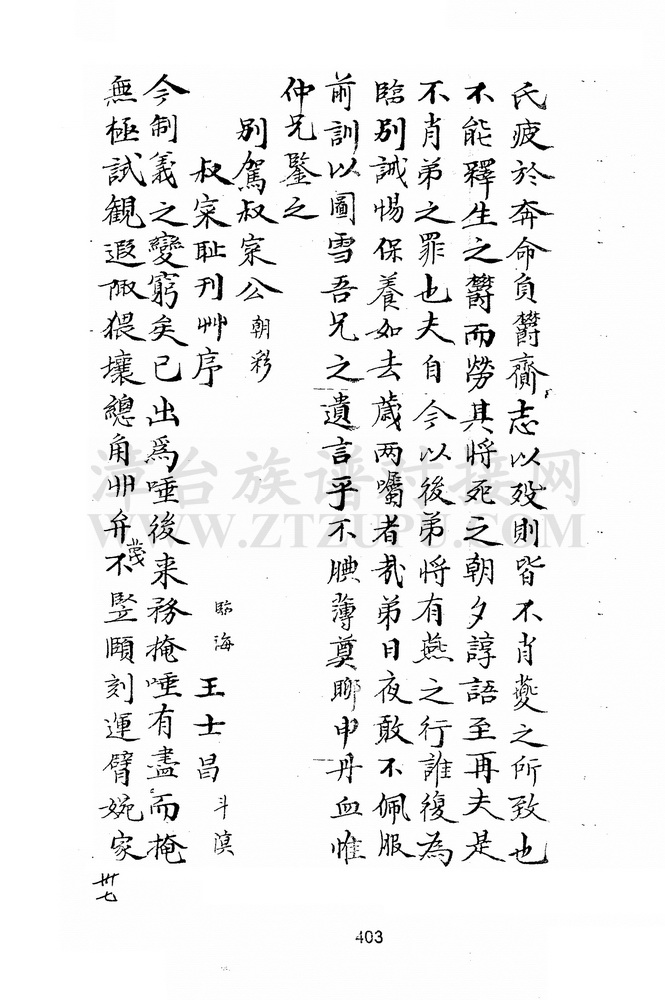 氏疲於奔命負欝齎志以歿則皆不肖夔之所致也
不能釋生之欝而勞其將死之朝夕諄語至再夫是
不肖弟之罪也夫自今以後弟將有燕之行誰復為
臨別誡惕保養如去歲两囑者哉弟日夜敢不佩服
前訓以圖雪吾兄之遺言乎不腆薄奠聊申丹血惟
仲兄鑒之
別駕叔寀公朝彩
叔寀耻刋艸序
臨海王士昌斗溟
今制義之變窮矣已出爲唾後来務掩唾有盡而掩
無極試観遐陬猥壤總角丱弁不豎頤刻運臂婉家
冀
卅七
403
漳台族谱对接网
WWW.ZTZUPU.COM